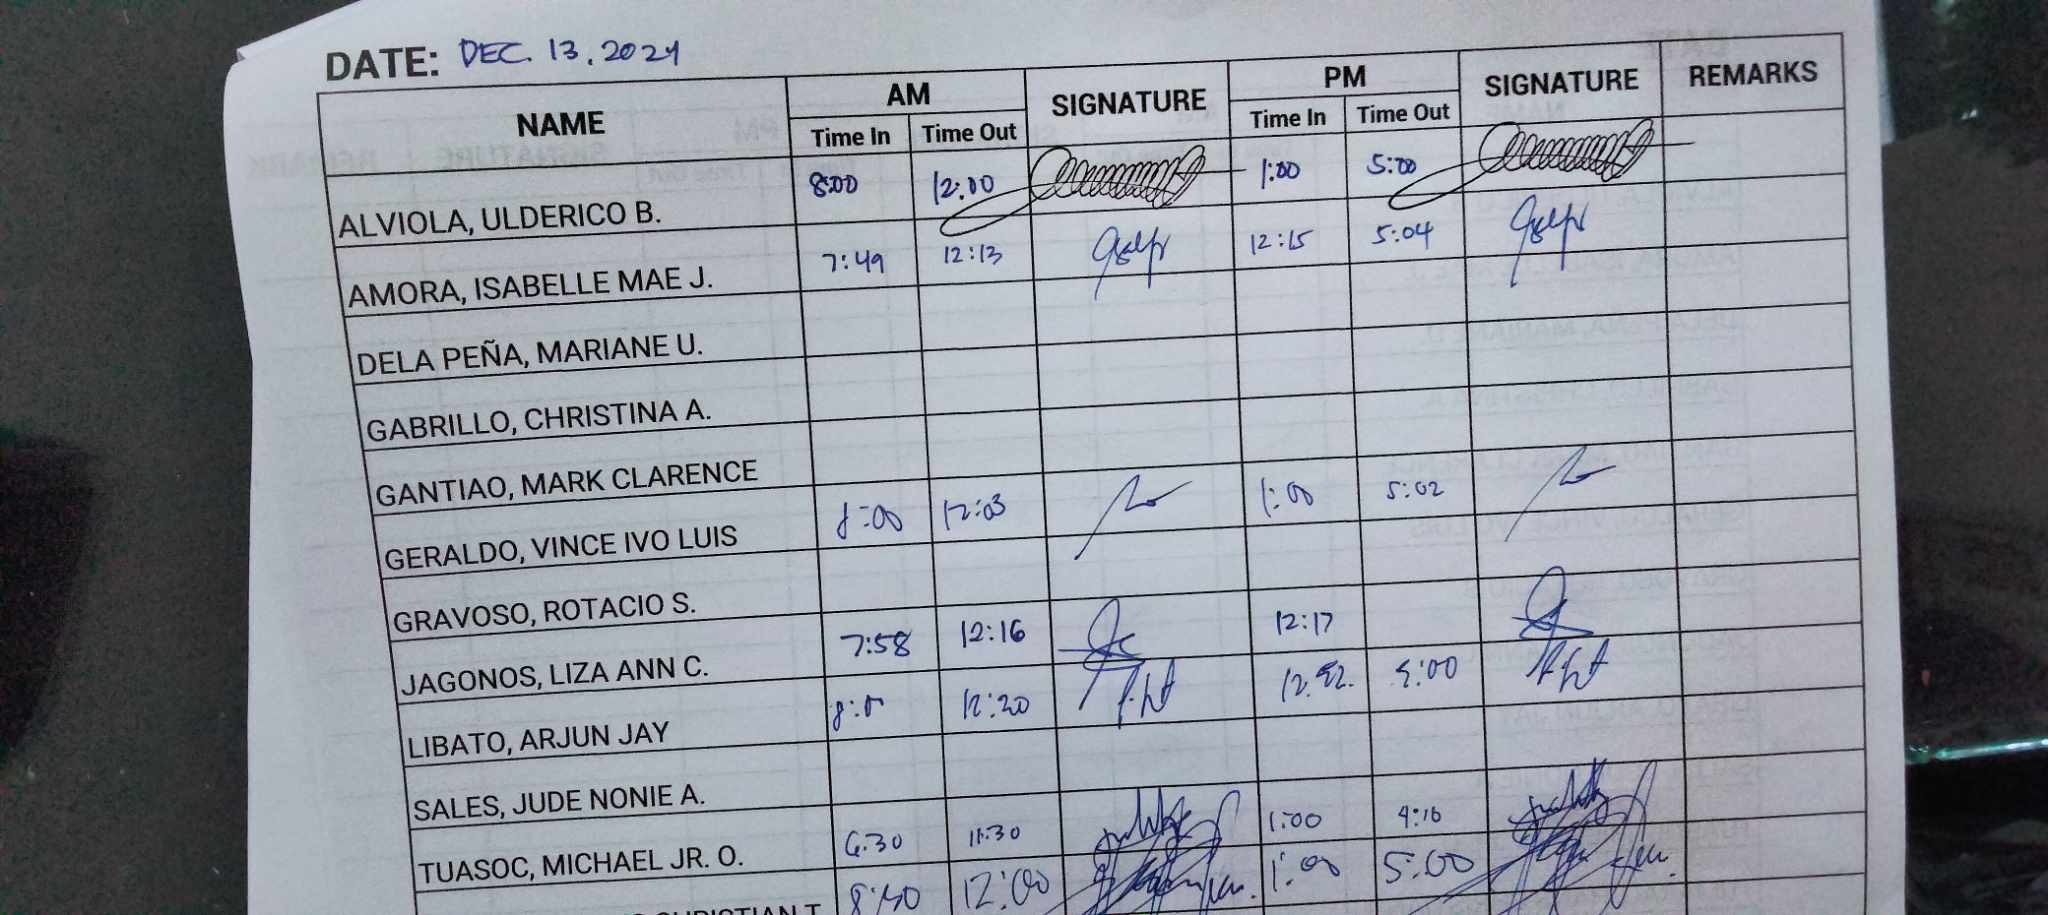 DATE: DEC. 13, 2024
NAME AM SIGNATURE PM SIGNATURE REMARKS
Time In Time Out Time In Time Out
ALVIOLA, ULDERICO B. 8:00 12:00 1:00 5:00
AMORA, ISABELLE MAE J. 7:49 12:13 12:15 5:04
DELA PEÑA, MARIANE U.
GABRILLO, CHRISTINA A.
GANTIAO, MARK CLARENCE
GERALDO, VINCE IVO LUIS 8:00 12:03 1:00 5:02
GRAVOSO, ROTACIO S.
JAGONOS, LIZA ANN C. 7:58 12:16 12:17
LIBATO, ARJUN JAY 12:20 5:00
SALES, JUDE NONIE A.
TUASOC, MICHAEL JR. O. 6:30 11:30 1:00 4:16
CHRISTIAN T 12:00 1:00 5:00